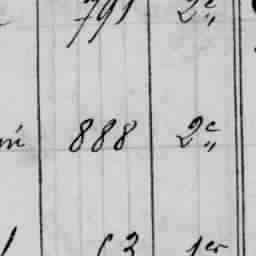 791 2e
888 2e
63 1er